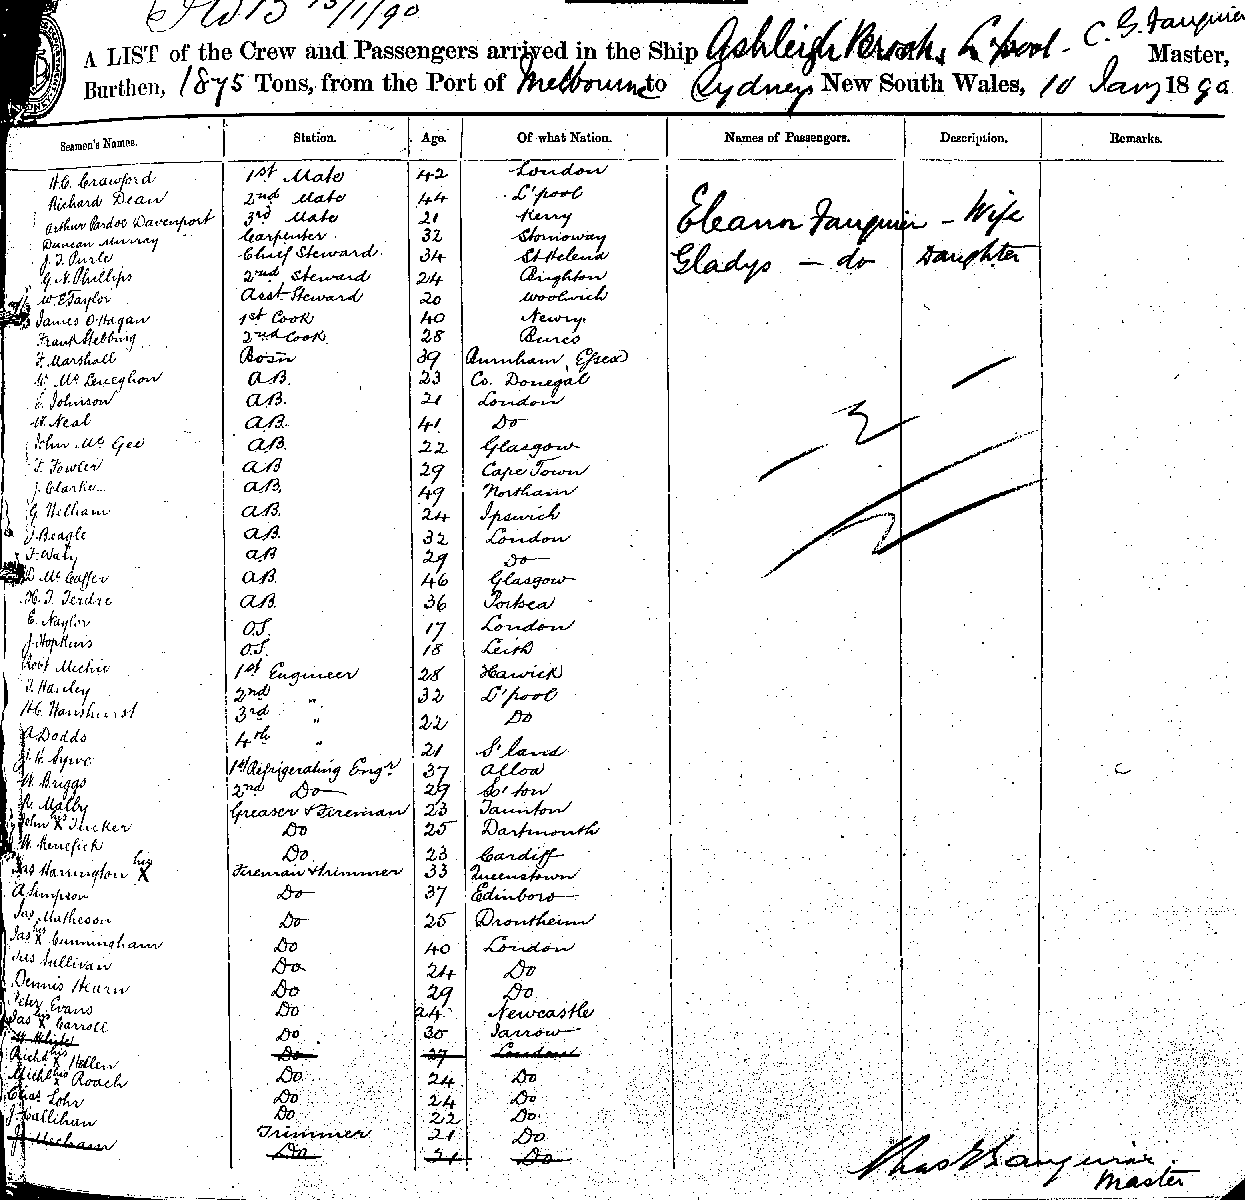 15/1/90
A LIST of the Crew and Passengers arrived in the Ship Ashleigh Brook, L'pool - C. G. Fauquier Master,
Burthen, 1875 Tons, from the Port of Melbourne to Sydney New South Wales, 10 Jany 1890
Seamen's Names. Station. Age. Of what Nation. Names of Passengers. Description. Remarks.
H.C. Crawford 1st Mate 42 London
Richard Dean 2nd Mate 44 L'pool
Arthur Pardoe Davenport 3rd Mate 21 Kerry Eleanor Fauquier - Wife
Duncan Murray Carpenter 32 Stornoway
J. T. Purle Chief Steward 34 St Helena Gladys - do Daughter
G. A. Phillips 2nd Steward 24 Brighton
W E Taylor Asst. Steward 20 Woolwich
James O'Hagan 1st Cook 40 Newry
Frank Stebbing 2nd Cook 28 Bures
F. Marshall Bosn 39 Burnham, Essex
W. Mc Leneghon A.B. 23 Co. Donegal
C. Johnson A.B. 21 London
W. Neal A.B. 41 Do
John Mc Gee A.B. 22 Glasgow
F. Fowler A.B 29 Cape Town
J. Clarke A.B. 49 Northam
G. Welham A.B. 24 Ipswich
J. Beagle A.B. 32 London
F. Waty A.B 29 Do
D Mc Caffer A.B. 46 Glasgow
H. T. Terdre A.B. 36 Portsea
E. Naylor O.S. 17 London
J. Hopkins O.S. 18 Leith
Robt Michie 1st Engineer 28 Hawick
T. Hanley 2nd " 32 L'pool
H.C. Hanshurst 3rd " 22 Do
A Dodds 4th " 21 S'land
Syme 1st Refrigerating Engr 37 Alloa
W. Briggs 2nd Do 29 So'ton
R. Malby Greaser & Fireman 23 Taunton
John X Tucker Do 25 Dartmouth
W. Renefick Do 23 Cardiff
Jas Harrington his X Fireman & trimmer 33 Queenstown
A Simpson Do 37 Edinboro
Jas. Matheson Do 25 Drontheim
Jas his X Cunningham Do 40 London
Sullivan Do 24 Do
Dennis Hearn Do 29 Do
Peter Evans Do 24 Newcastle
Jas X Carroll Do 30 Jarrow
W White Do 37 London
Richd his X Hollen Do 24 Do
Michl his X Roach Do 24 Do
Chas Lohr Do 22 Do
J. Callihan Trimmer 21 Do
J. Mecham Do 21 Do
Chas G Fauquier
Master